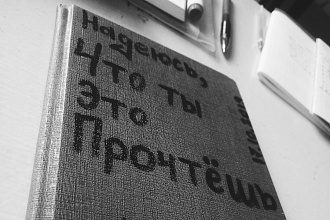 Надеюсь,
Что ты
Это
Прочтёшь